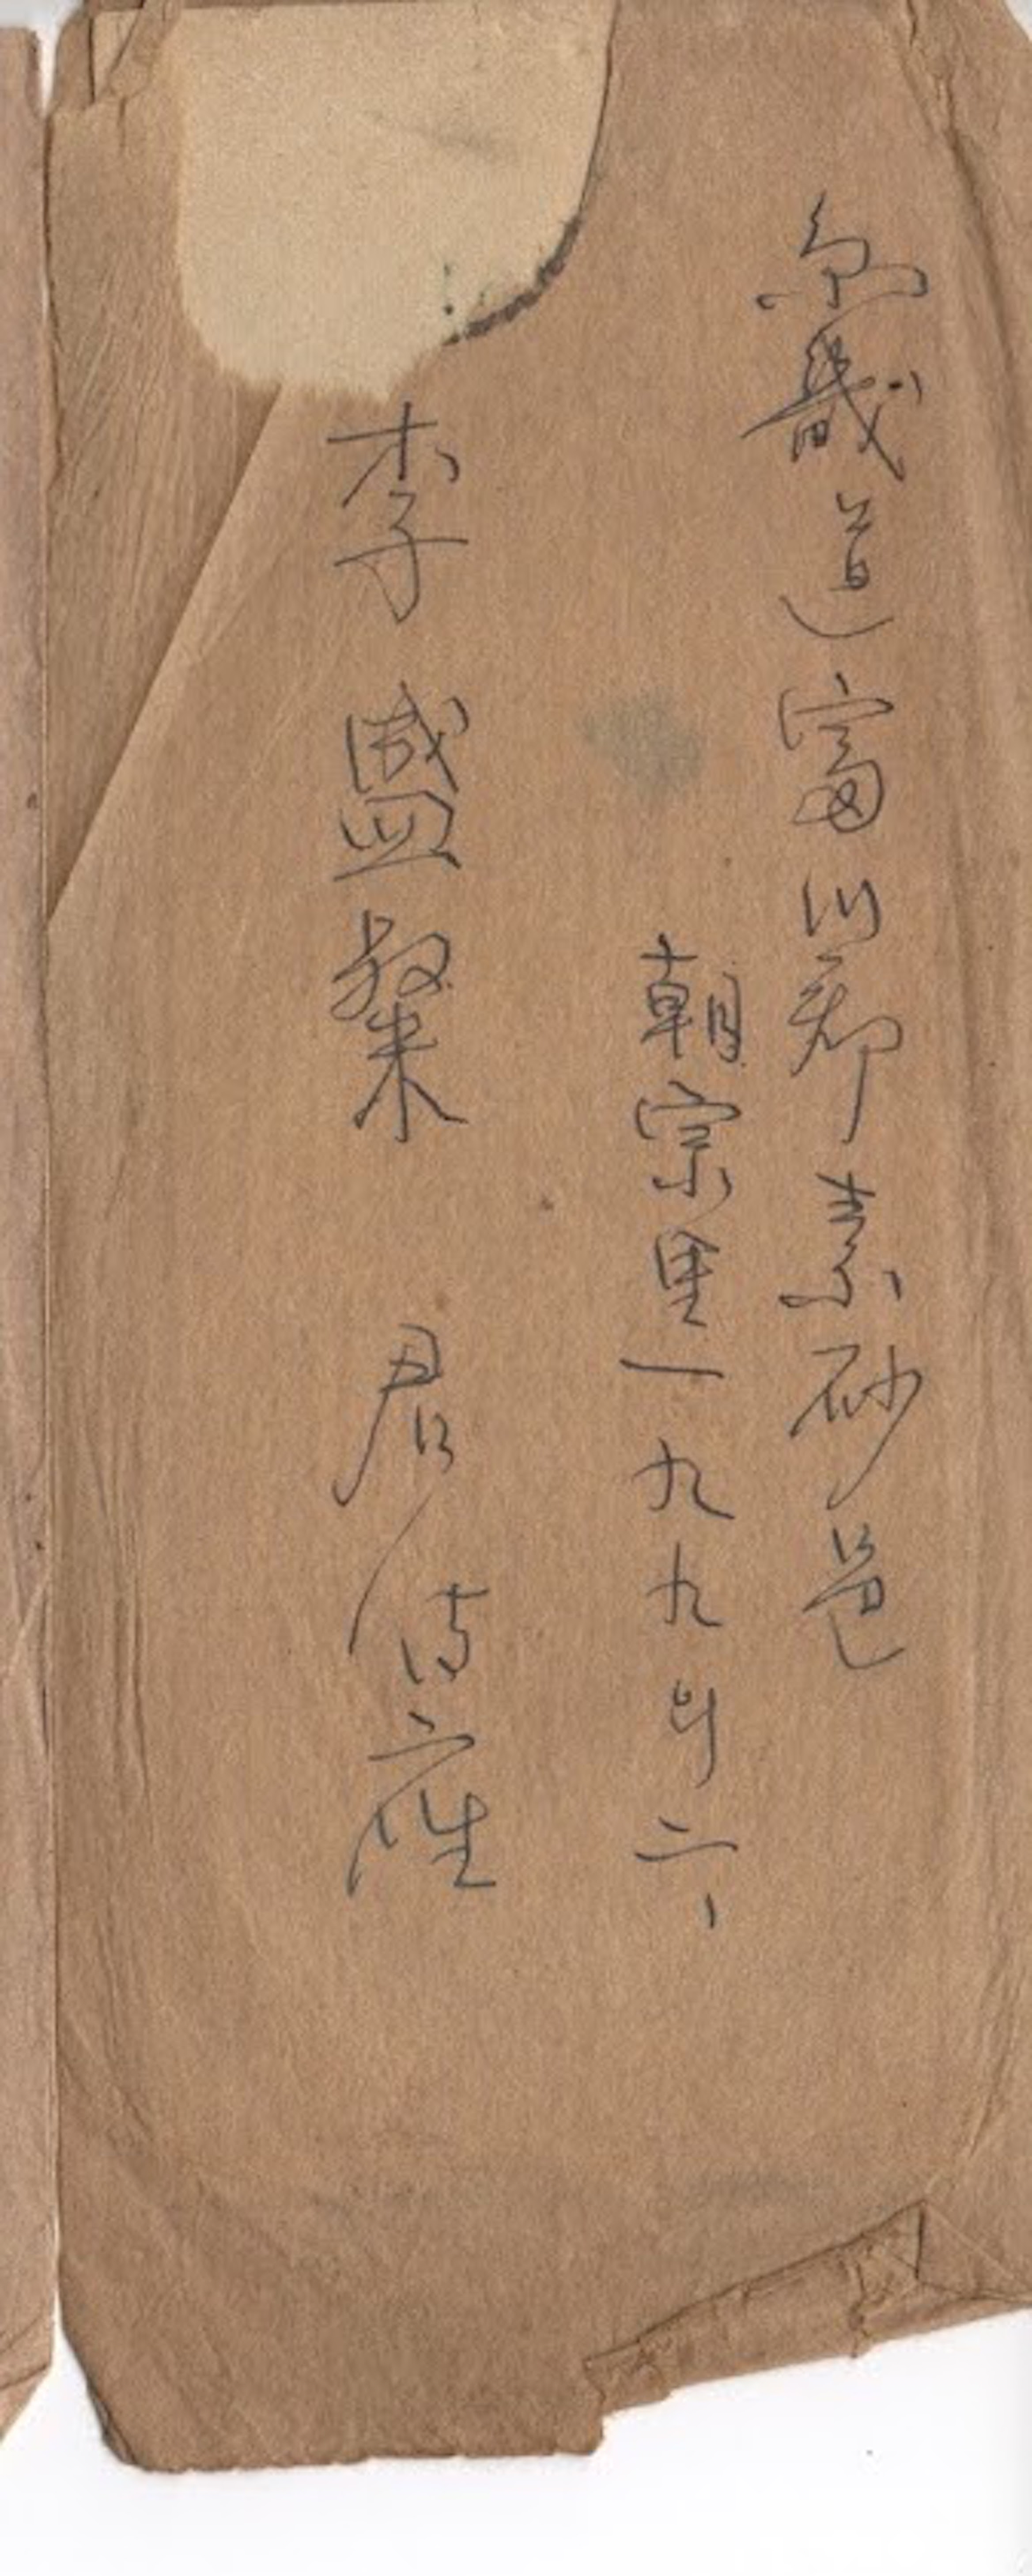 京畿道富川郡素砂邑
朝宗里一九九의二
李盛粲 君 侍座